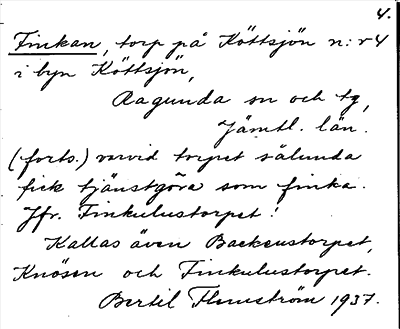 4.
Finkan, torp på Köttsjön n:r 4
i byn Köttsjön,
Ragunda sn och tg,
Jämtl. län.
(forts.) varvid torpet sålunda
fick tjänstgöra som finka.
Jfr. Finkulustorpet!
Kallas även Backenstorpet,
Knösen och Finkulustorpet.
Bertil Flemström 1937.